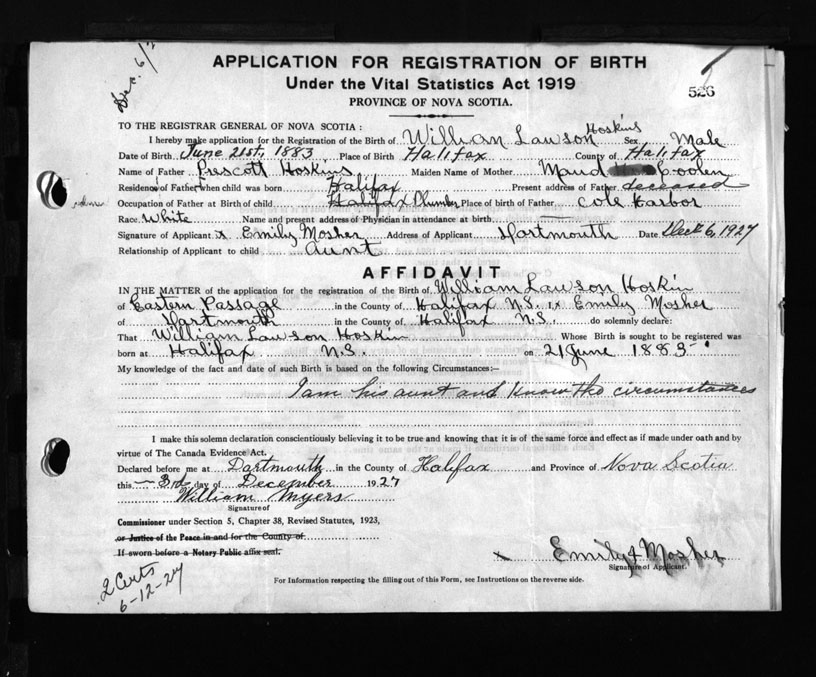 Dec 6/
APPLICATION FOR REGISTRATION OF BIRTH
Under the Vital Statistics Act 1919
526
PROVINCE OF NOVA SCOTIA.
TO THE REGISTRAR GENERAL OF NOVA SCOTIA :
I hereby make application for the Registration of the Birth of William Lawson Hoskins Sex Male
Date of Birth June 21st, 1883 Place of Birth Halifax County of Halifax
Name of Father Prescott Hoskins Maiden Name of Mother Maud Coolen
Residence of Father when child was born Halifax Present address of Father deceased
Occupation of Father at Birth of child Halifax Plumber Place of birth of Father Cole Harbor
Race White Name and present address of Physician in attendance at birth
Signature of Applicant x Emily Mosher Address of Applicant Dartmouth Date Dec 6, 1927
Relationship of Applicant to child aunt
AFFIDAVIT
IN THE MATTER of the application for the registration of the Birth of William Lawson Hoskin
of Eastern Passage in the County of Halifax N.S. Emily Mosher
of Dartmouth in the County of Halifax N.S. do solemnly declare:
That William Lawson Hoskin Whose Birth is sought to be registered was
born at Halifax N.S. on 21 June 1883
My knowledge of the fact and date of such Birth is based on the following Circumstances:—
I am his aunt and know the circumstances
I make this solemn declaration conscientiously believing it to be true and knowing that it is of the same force and effect as if made under oath and by
virtue of The Canada Evidence Act.
Declared before me at Dartmouth in the County of Halifax and Province of Nova Scotia
this 3rd day of December 1927
William Myers
Signature of
Commissioner under Section 5, Chapter 38, Revised Statutes, 1923,
or Justice of the Peace in and for the County of
If sworn before a Notary Public affix seal.
x Emily Mosher
Signature of Applicant.
2 Certs
6-12-27
For Information respecting the filling out of this Form, see Instructions on the reverse side.